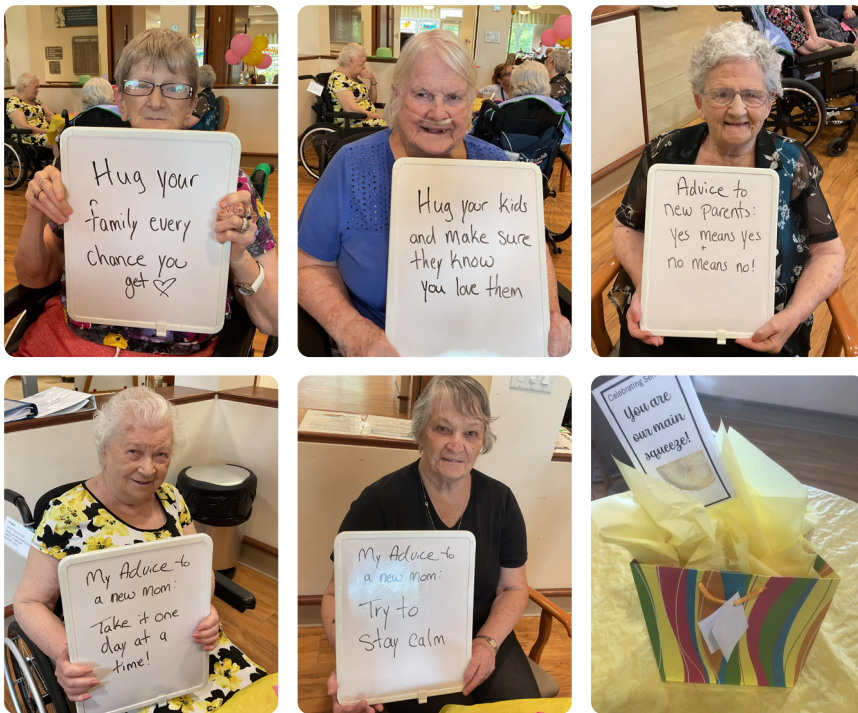 Hug your
family every
chance you
get ♡
Hug your kids
and make sure
they know
you love them
Advice to
new parents:
yes means yes
+
no means no!
My Advice to
a new mom:
Take it one
day at a
time!
My Advice to
a new mom:
Try to
stay calm
Celebrating
You are
our main
squeeze!